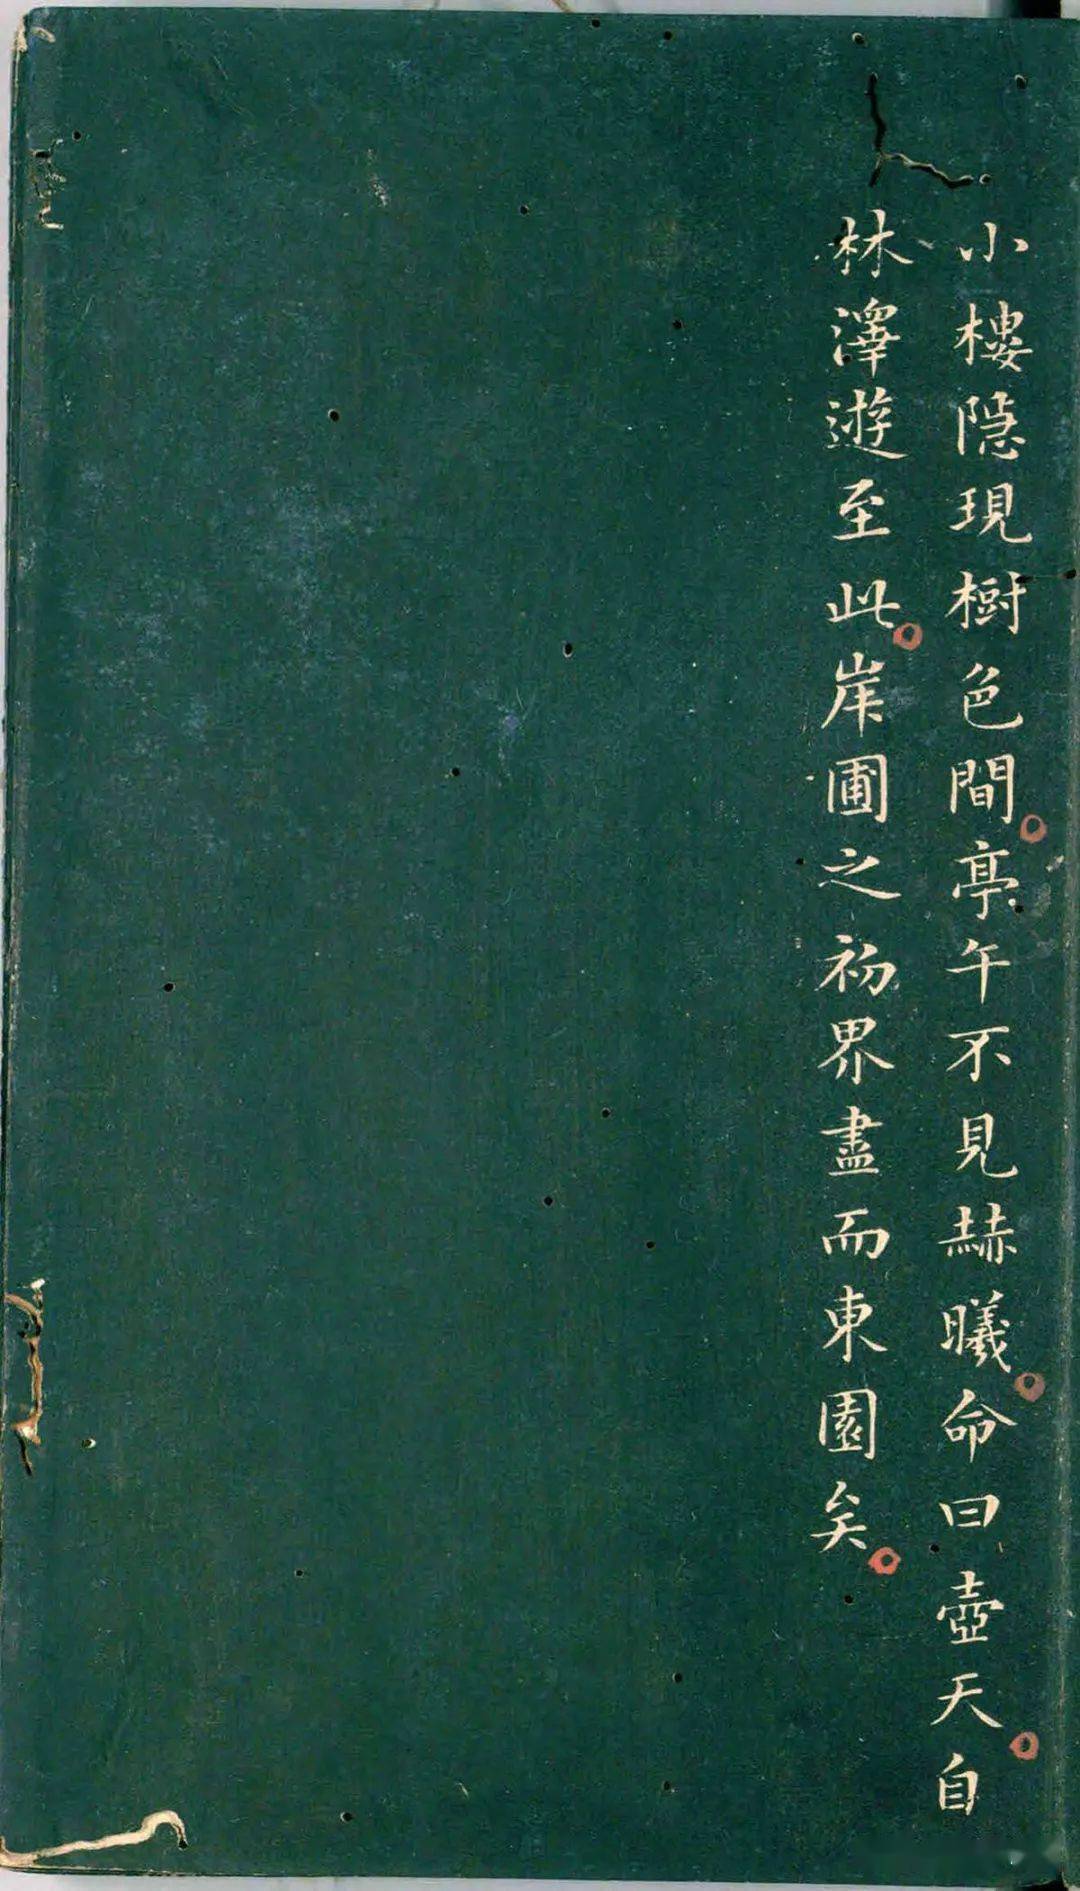 小樓隱現樹色間。亭午不見赫曦。命曰壺天。自
林澤遊至此。岸圃之初界盡而東園矣。